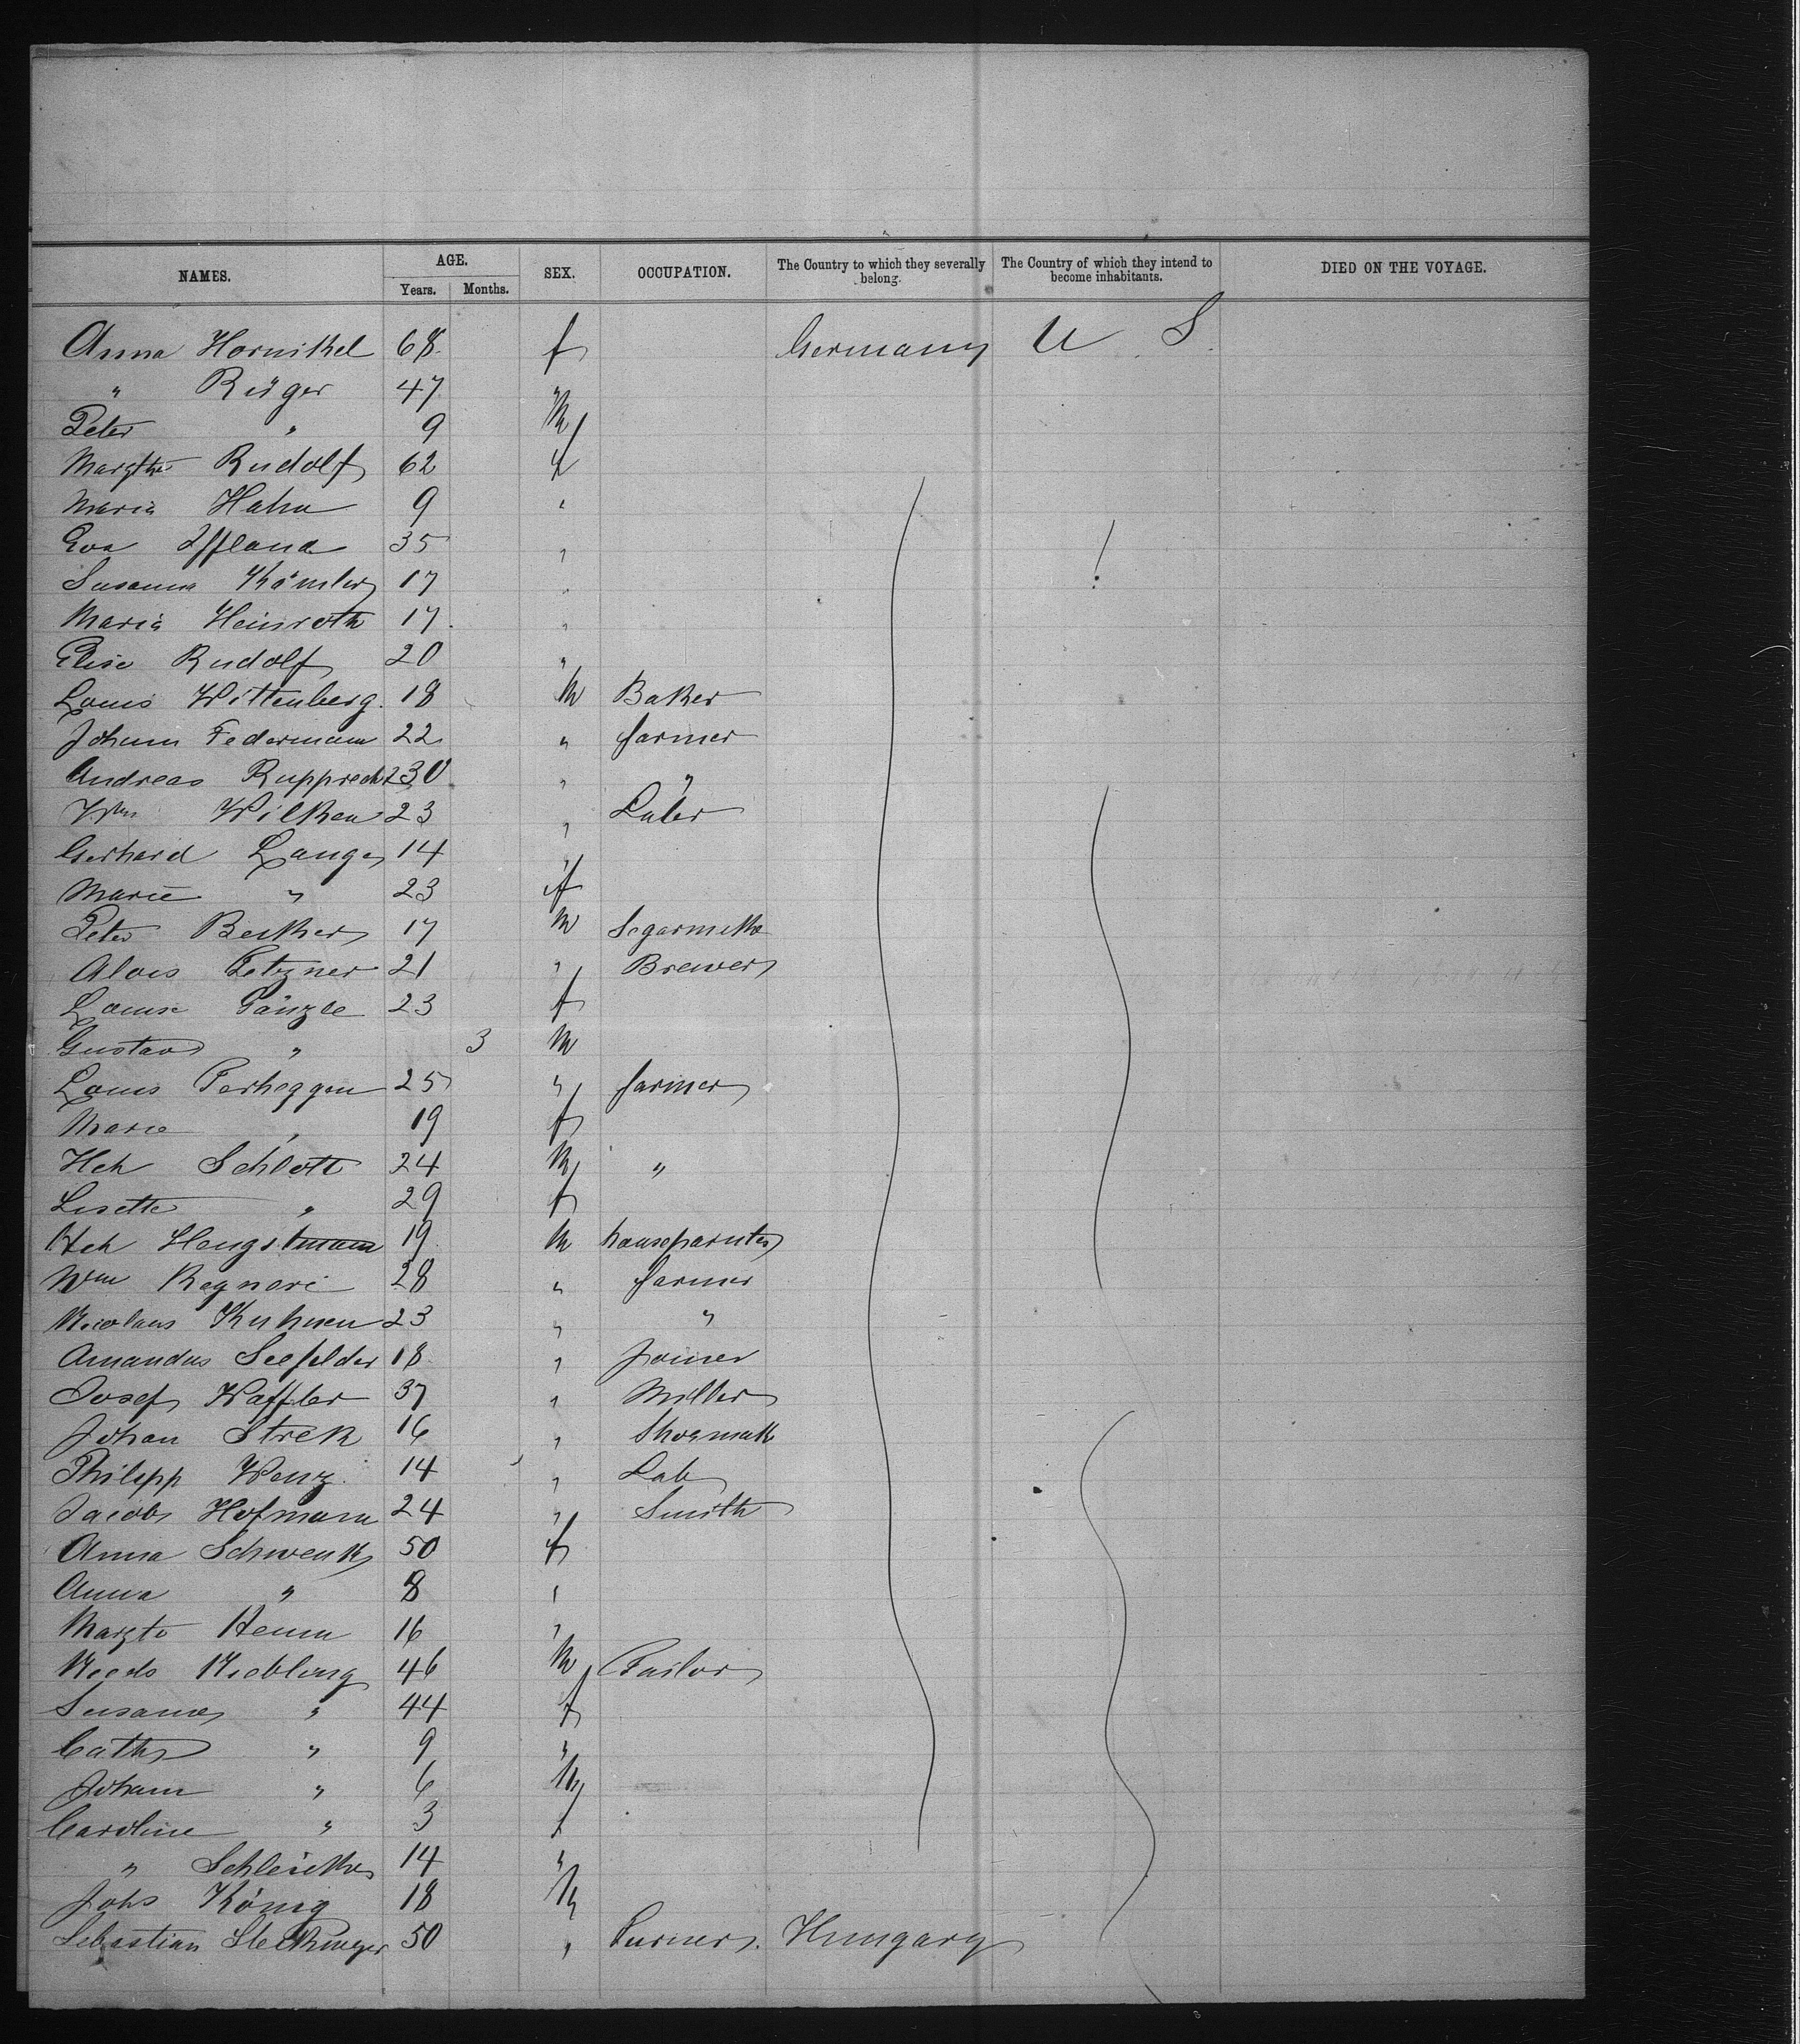 NAMES. AGE. SEX. OCCUPATION. The Country to which they severally belong. The Country of which they intend to become inhabitants. DIED ON THE VOYAGE.
Years. Months.
Anna Hornikel 68 f Germany U S
" Rüger 47 "
Peter " 9 M
Margthe Rudolf 62 f
Maria Hahn 9 "
Eva Iffland 35 "
Susanna 17 "
Maria Heinroth 17 "
Elise Rudolf 20 "
Louis Wittenberg 18 M Baker
Johann Federmann 22 " farmer
Andreas Rupprecht 30 " "
Wm Wilken 23 " Laber
Gerhard Lange 14 "
Marie " 23 f
Peter Becker 17 M Segarmk
Alois Fetzner 21 " Brewer
Louise Gänzle 23 f
Gustav " 3 M
Louis Terheggen 25 " farmer
Marie " 19 f
Hch Schlott 24 M "
Lisette " 29 f
Hch Hengstmann 19 M housepainter
Wm Regneri 28 " farmer
Nicolaus Kuhnen 23 " "
Amandus Seefelder 18 " Joiner
Josef Waffler 37 " Miller
Johan Strek 16 " Shoemak
Philipp Wenz 14 " Lab
Jacob Hofmann 24 " Smith
Anna Schwenk 50 f
Anna " 8 "
Margte Henn 16 "
Niebling 46 M Tailor
Susanne " 44 f
Cath " 9 "
Johann " 6 M
Caroline " 3 f
" 14 "
Johs König 18 M
Sebastian 50 " Turner. Hungary